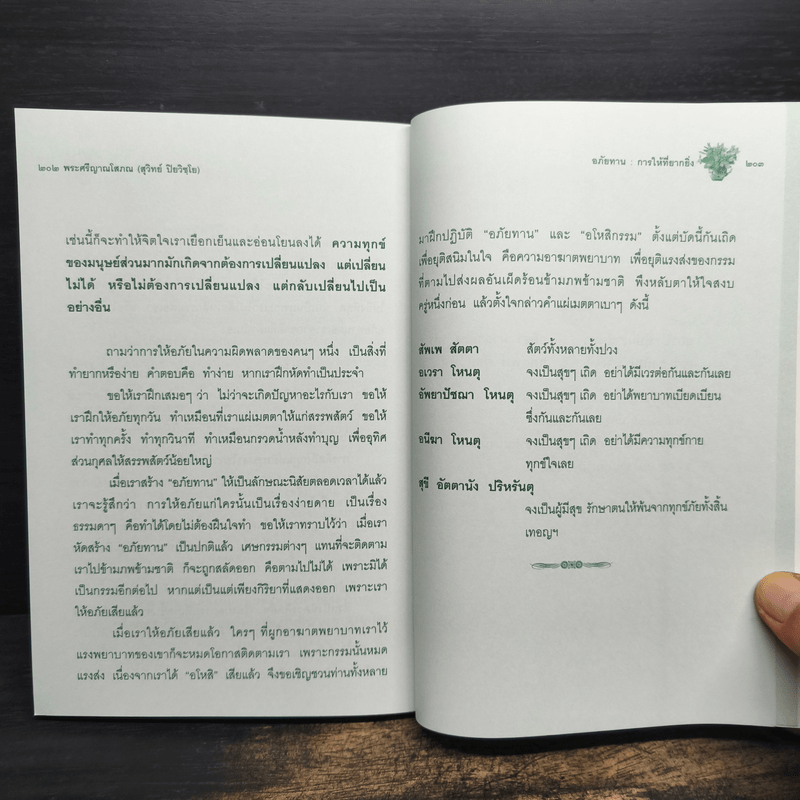 ๒๐๒ พระศรีญาณโสภณ (สุวิทย์ ปิยวิชฺโช)
เช่นนี้ก็จะทำให้จิตใจเราเยือกเย็นและอ่อนโยนลงได้ ความทุกข์
ของมนุษย์ส่วนมากมักเกิดจากต้องการเปลี่ยนแปลง แต่เปลี่ยน
ไม่ได้ หรือไม่ต้องการเปลี่ยนแปลง แต่กลับเปลี่ยนไปเป็น
อย่างอื่น
ถามว่าการให้อภัยในความผิดพลาดของคนๆ หนึ่ง เป็นสิ่งที่
ทำยากหรือง่าย คำตอบคือ ทำง่าย หากเราฝึกหัดทำเป็นประจำ
ขอให้เราฝึกเสมอๆ ว่า ไม่ว่าจะเกิดปัญหาอะไรกับเรา ขอให้
เราฝึกให้อภัยทุกวัน ทำเหมือนที่เราแผ่เมตตาให้แก่สรรพสัตว์ ขอให้
เราทำทุกครั้ง ทำทุกวินาที ทำเหมือนกรวดน้ำหลังทำบุญ เพื่ออุทิศ
ส่วนกุศลให้สรรพสัตว์น้อยใหญ่
เมื่อเราสร้าง “อภัยทาน” ให้เป็นลักษณะนิสัยตลอดเวลาได้แล้ว
เราจะรู้สึกว่า การให้อภัยแก่ใครนั้นเป็นเรื่องง่ายดาย เป็นเรื่อง
ธรรมดาๆ คือทำได้โดยไม่ต้องฝืนใจทำ ขอให้เราทราบไว้ว่า เมื่อเรา
หัดสร้าง “อภัยทาน” เป็นปกติแล้ว เศษกรรมต่างๆ แทนที่จะติดตาม
เราไปข้ามภพข้ามชาติ ก็จะถูกสลัดออก คือตามไปไม่ได้ เพราะมิได้
เป็นกรรมอีกต่อไป หากแต่เป็นแต่เพียงกิริยาที่แสดงออก เพราะเรา
ให้อภัยเสียแล้ว
เมื่อเราให้อภัยเสียแล้ว ใครๆ ที่ผูกอาฆาตพยาบาทเราไว้
แรงพยาบาทของเขาก็จะหมดโอกาสติดตามเรา เพราะกรรมนั้นหมด
แรงส่ง เนื่องจากเราได้ “อโหสิ” เสียแล้ว จึงขอเชิญชวนท่านทั้งหลาย
อภัยทาน : การให้ที่ยากยิ่ง ๒๐๓
มาฝึกปฏิบัติ “อภัยทาน” และ “อโหสิกรรม” ตั้งแต่บัดนี้กันเถิด
เพื่อยุติสนิมในใจ คือความอาฆาตพยาบาท เพื่อยุติแรงส่งของกรรม
ที่ตามไปส่งผลอันเผ็ดร้อนข้ามภพข้ามชาติ พึงหลับตาให้ใจสงบ
ครู่หนึ่งก่อน แล้วตั้งใจกล่าวคำแผ่เมตตาเบาๆ ดังนี้
สัพเพ สัตตา สัตว์ทั้งหลายทั้งปวง
อเวรา โหนตุ จงเป็นสุขๆ เถิด อย่าได้มีเวรต่อกันและกันเลย
อัพยาปัชฌา โหนตุ จงเป็นสุขๆ เถิด อย่าได้พยาบาทเบียดเบียน
ซึ่งกันและกันเลย
อนีฆา โหนตุ จงเป็นสุขๆ เถิด อย่าได้มีความทุกข์กาย
ทุกข์ใจเลย
สุขี อัตตานัง ปริหรันตุ
จงเป็นผู้มีสุข รักษาตนให้พ้นจากทุกข์ภัยทั้งสิ้น
เทอญฯ